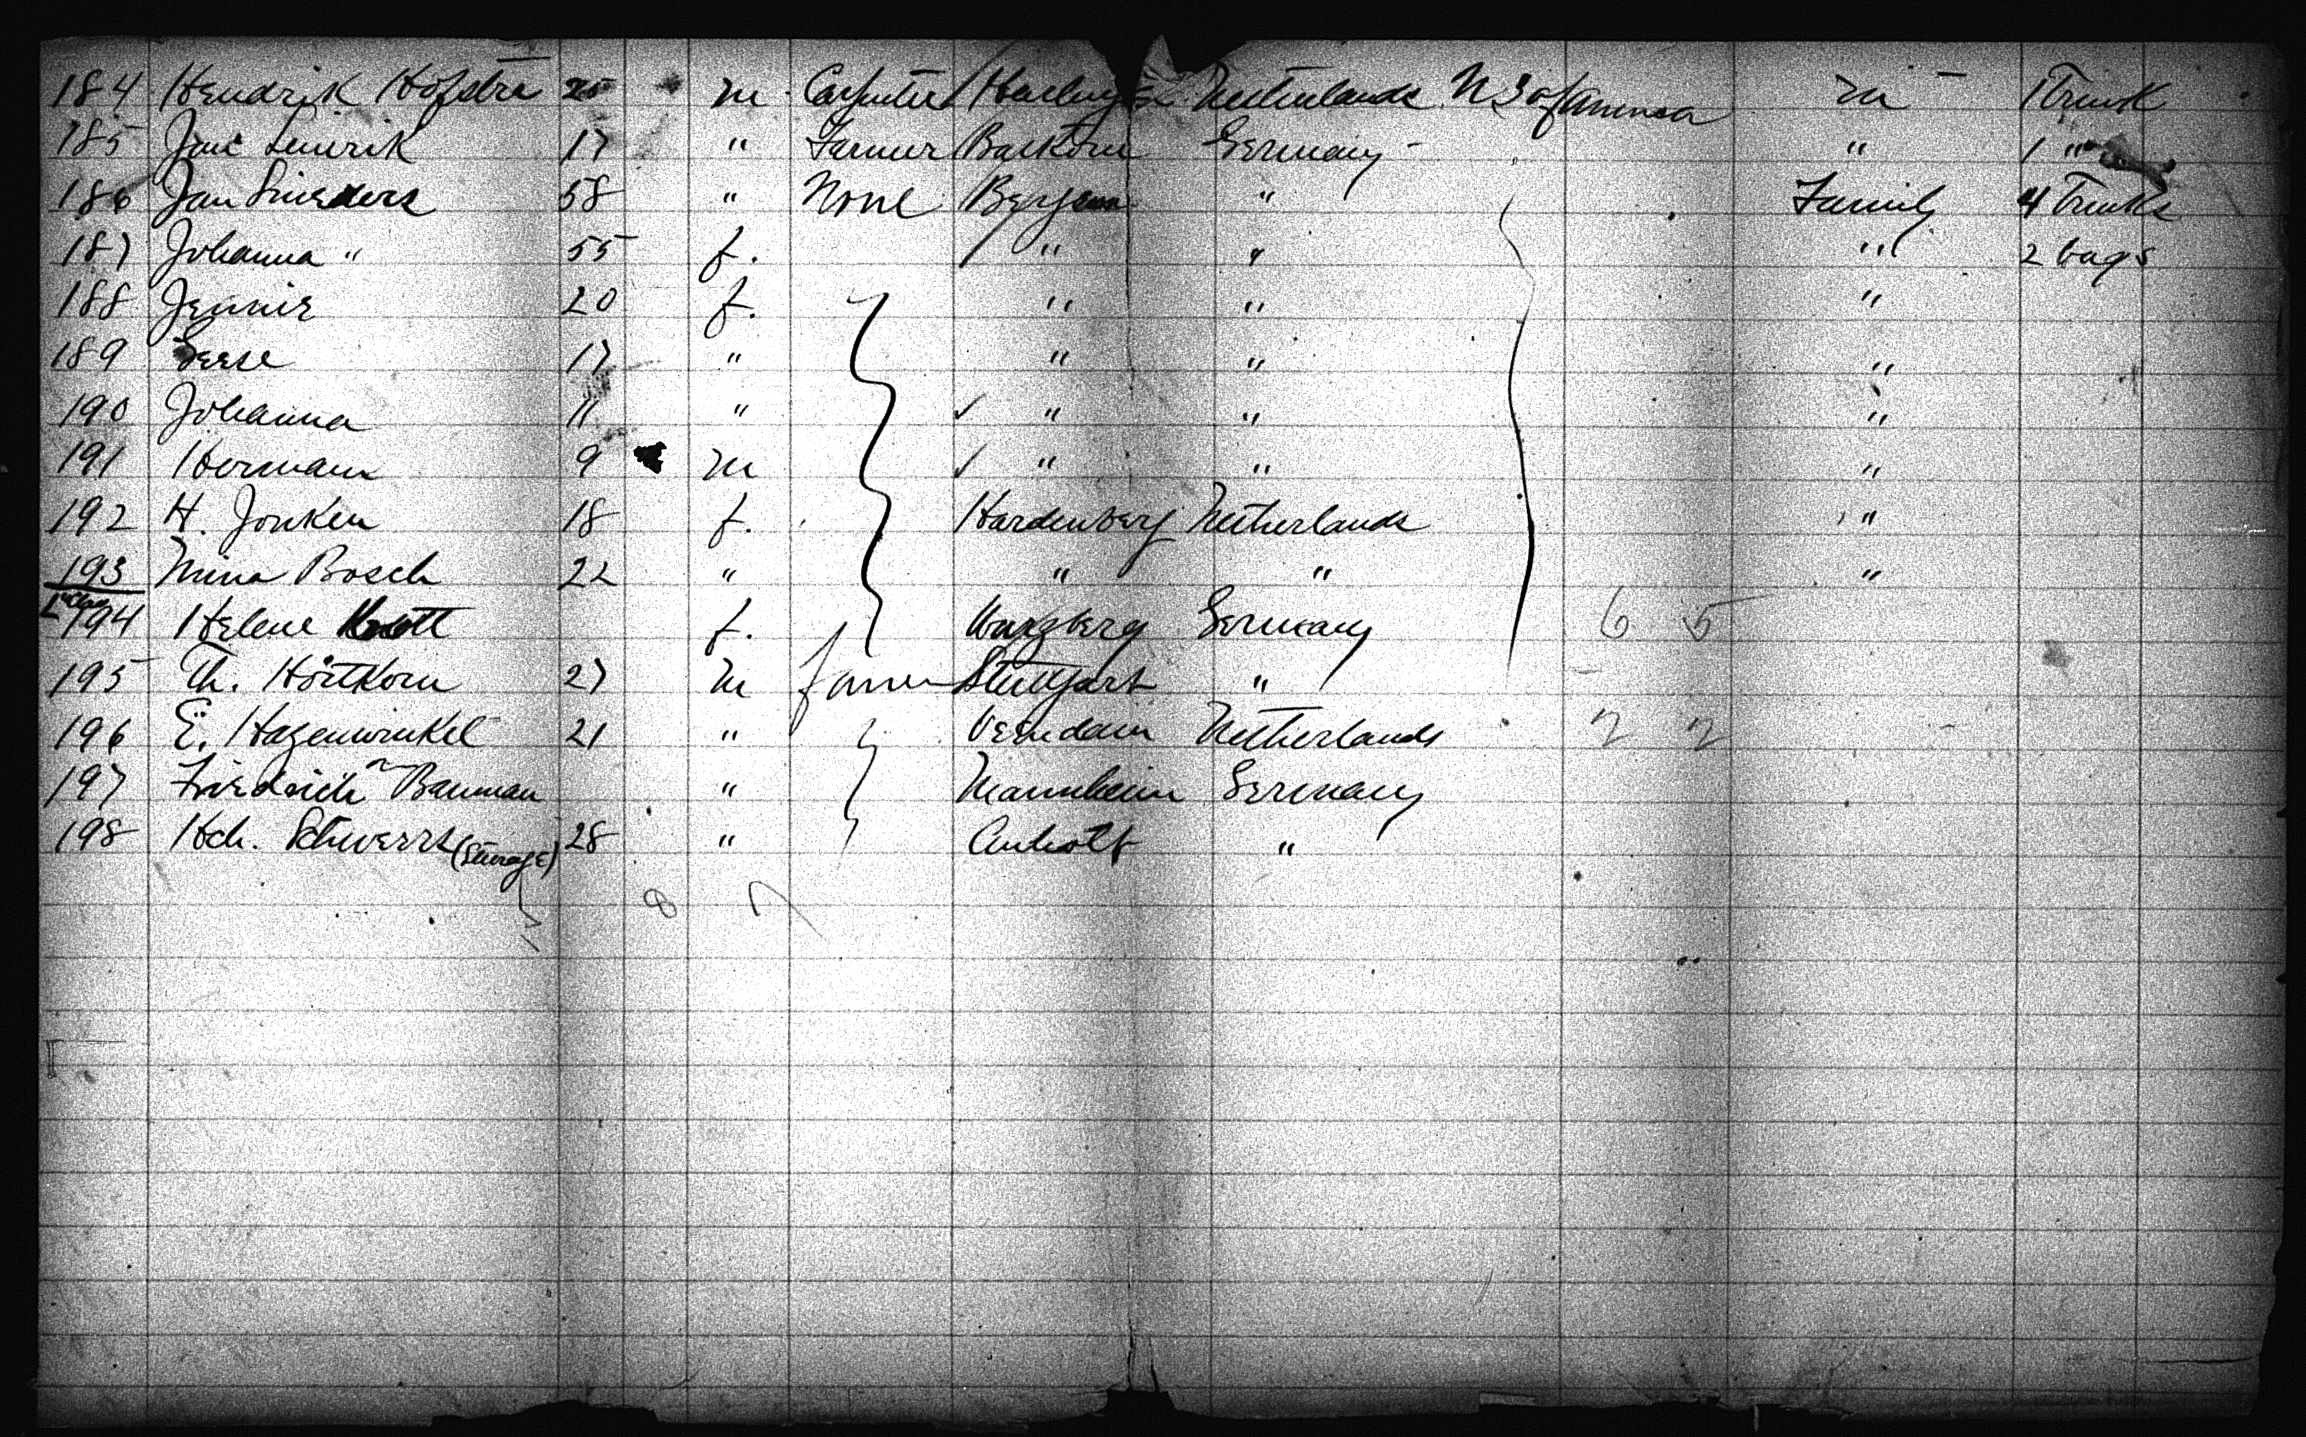 184 Hendrik Hofstra 25 m Carpenter Harlingen Netherlands U S of America m 1 Trunk
185 Jans 17 " Farmer Germany " 1 "
186 Jan 58 " None " Family 4 Trunks
187 Johanna " 55 f. " " " 2 bags
188 Jennie 20 f. " " "
189 Geese 17 " " " "
190 Johanna 11 " " " "
191 Hermann 9 m " " "
192 H. Jonken 18 f. Hardenberg Netherlands "
193 Mina Bosch 22 " " " "
194 Helene f. Germany 6 5
195 Th. Hörtkorn 27 m farmer Stuttgart "
196 E. Hazenwinkel 21 " Veendam Netherlands 2 2
197 Friedrich Bauman " Mannheim Germany
198 Hch. (Steerage) 28 " Anholt "
8 7